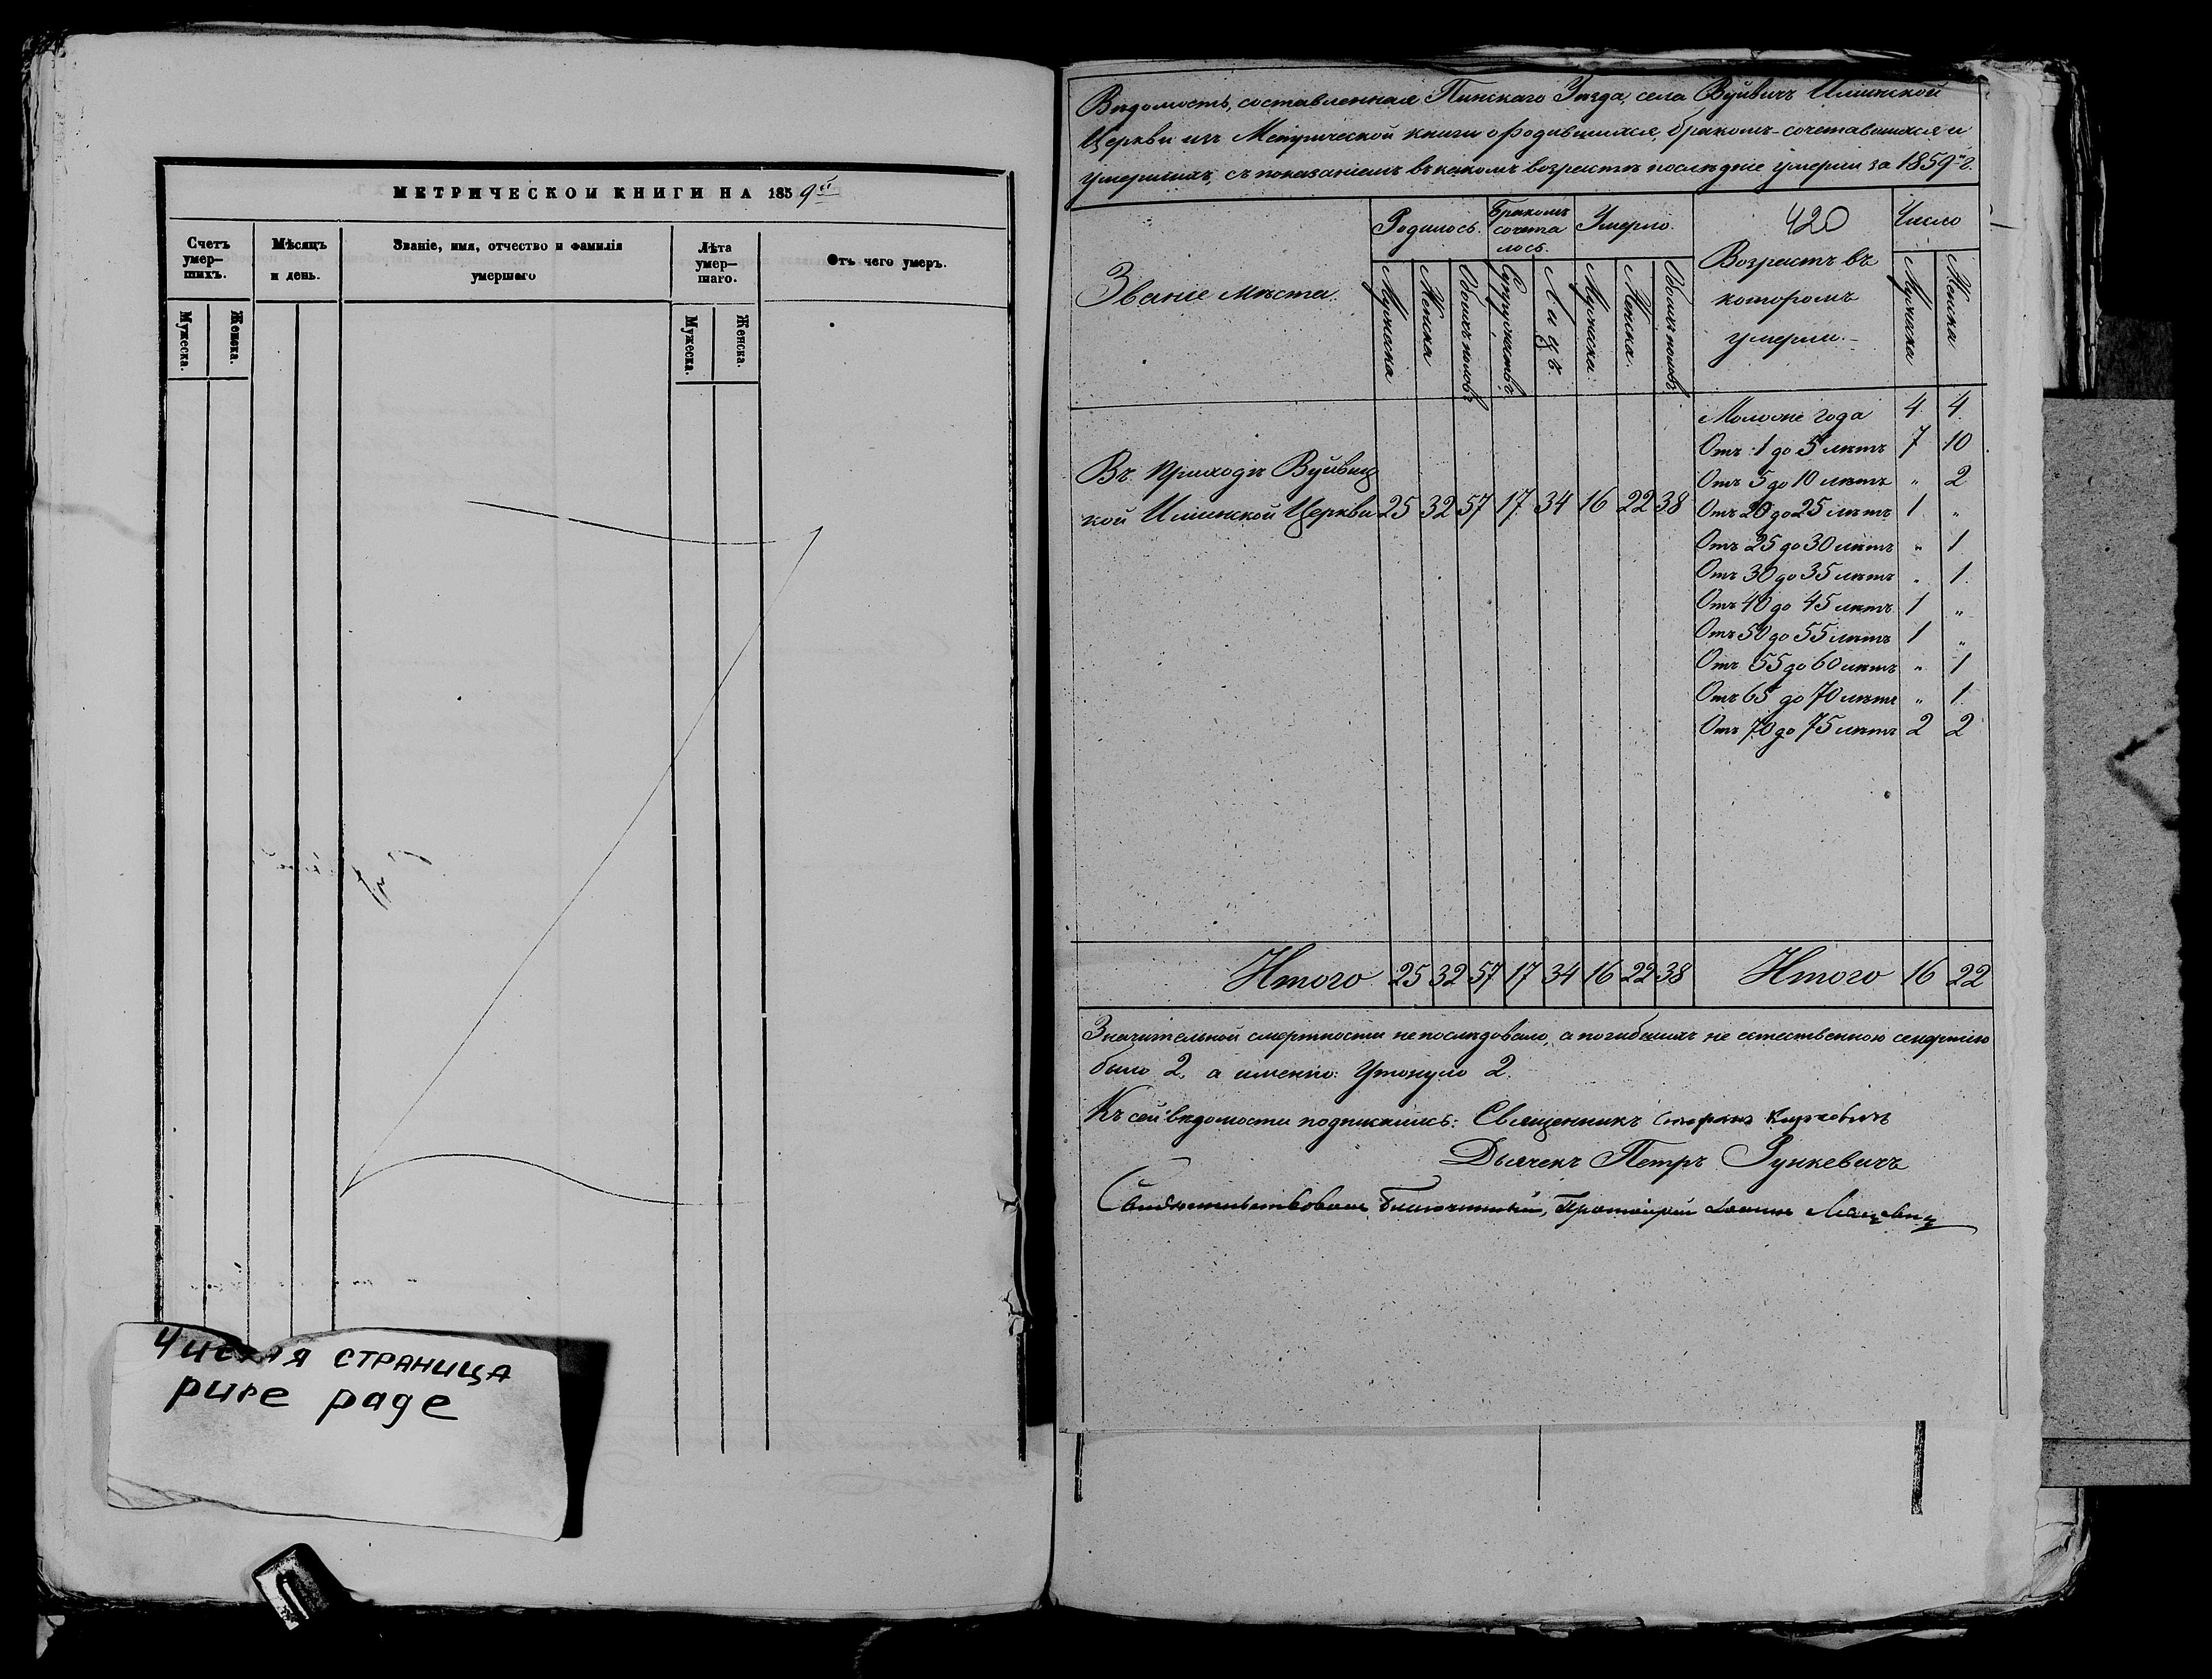 МЕТРИЧЕСКОЙ КНИГИ НА 1859й
Счетъ умер—шихъ.
Мѣсяцъ и день.
Званіе, имя, отчество и фамилія умершаго
Лѣта умер—шаго.
Отъ чего умеръ.
Мужеска.
Женска.
Мужеска.
Женска.
Чистая страница
pure page
Вѣдомость, составленная Пинскаго Уѣзда, села Вуйвичъ Ильинской
Церкви изъ Метрической книги о родившихся, бракомъ-сочетавшихся и
умершихъ, съ показаніемъ въ какомъ возрастѣ послѣдніе умерли за 1859й г.
Званіе мѣста.
Родилось.
Бракомъ сочета лось.
Умерло.
420
Возрастъ въ которомъ умерли.-
Число
Мужеска
Женска
Обоихъ половъ
Супружествъ
Лицъ.
Мужеска
Женска.
Обоихъ половъ
Мужеска
Женска
Моложе года 4 4
Отъ 1 до 5 лѣтъ 7 10
Отъ 5 до 10 лѣтъ " 2
Отъ 20 до 25 лѣтъ 1 "
Отъ 25 до 30 лѣтъ " 1
Отъ 30 до 35 лѣтъ " 1
Отъ 40 до 45 лѣтъ 1 "
Отъ 50 до 55 лѣтъ 1 "
Отъ 55 до 60 лѣтъ " 1
Отъ 65 до 70 лѣтъ " 1
Отъ 70 до 75 лѣтъ 2 2
Въ приходѣ Вуйвиц
кой Ильинской Церкви 25 32 57 17 34 16 22 38
Итого 25 32 57 17 34 16 22 38 Итого 16 22
Значительной смертности не послѣдовало, а погибшихъ не естественною смертію
было 2, а именно: Утонуло 2.
Къ сей вѣдомости подписались: Священникъ Стефанъ
Дьячекъ Петръ Зункевичъ
Свидѣтельствовалъ Благочинный, Протоіерей Іоаннъ